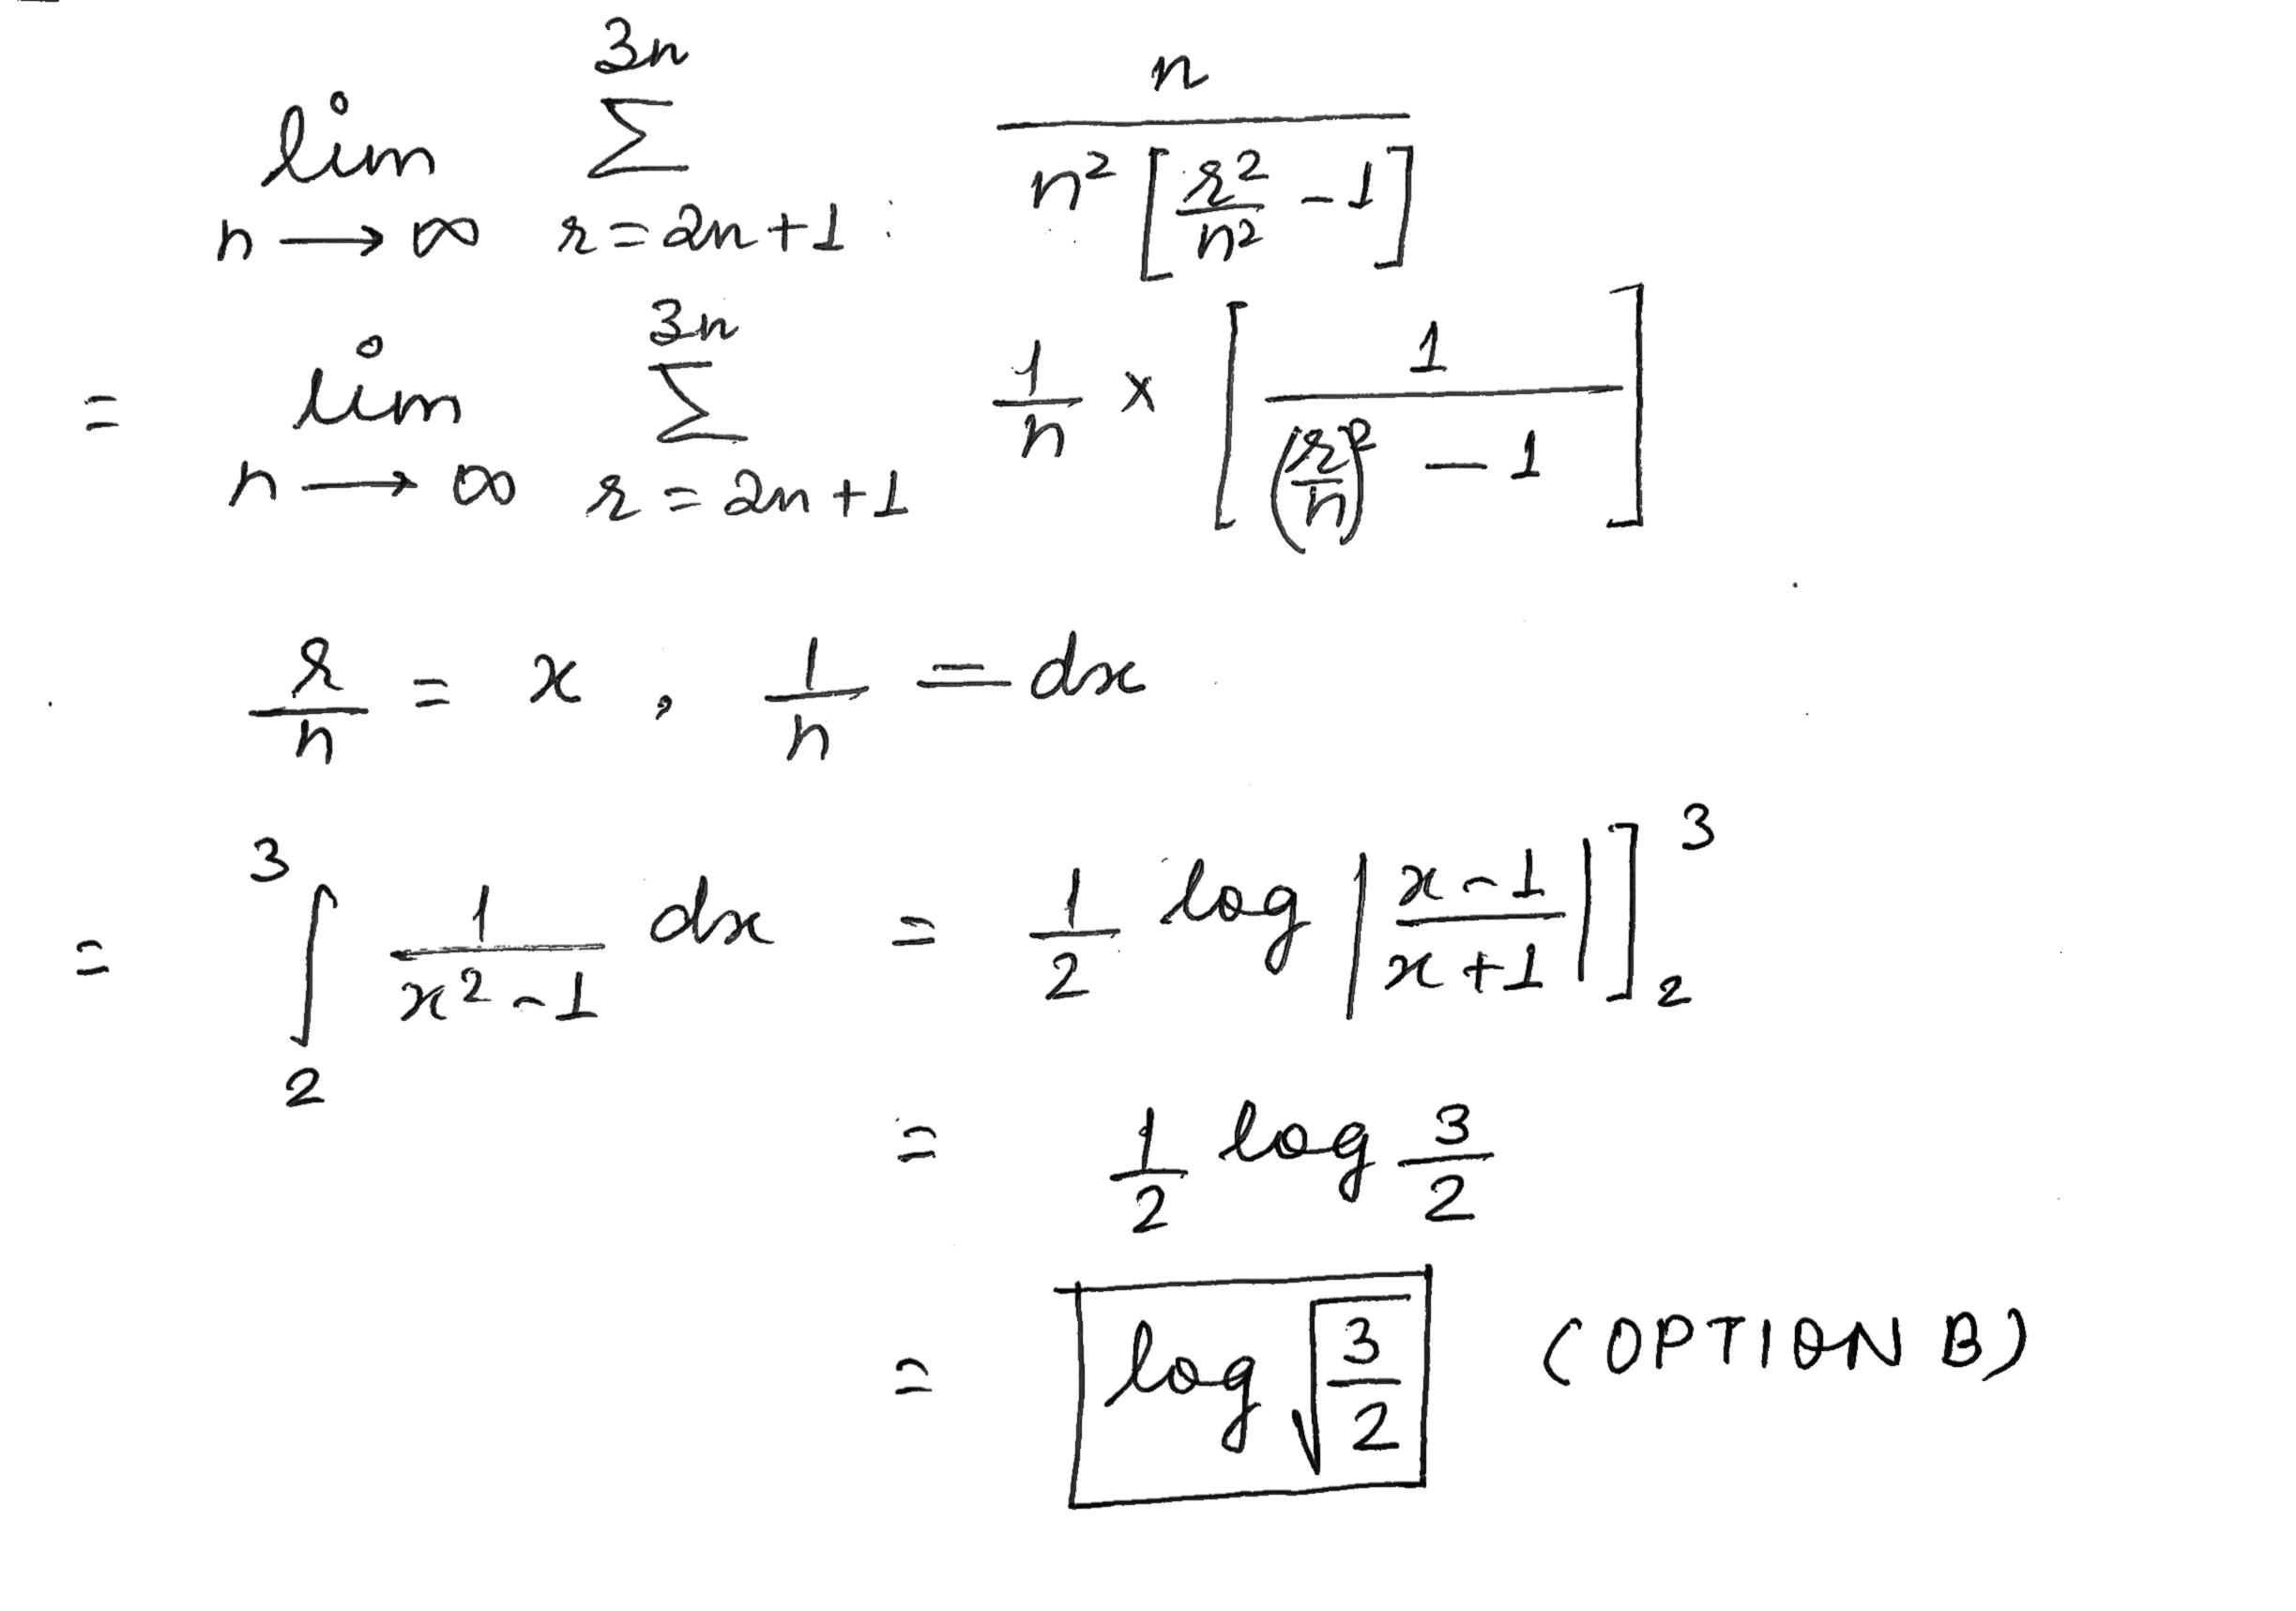 lim n→∞ 3n Σ r=2n+1 n / n² [r²/n² - 1]
= lim n→∞ 3n Σ r=2n+1 1/n × [1 / (r/n)² - 1]
r/n = x , 1/n = dx
= ∫₂³ 1/x²-1 dx = 1/2 log |x-1/x+1|]₂³
= 1/2 log 3/2
= log √3/2 (OPTION B)